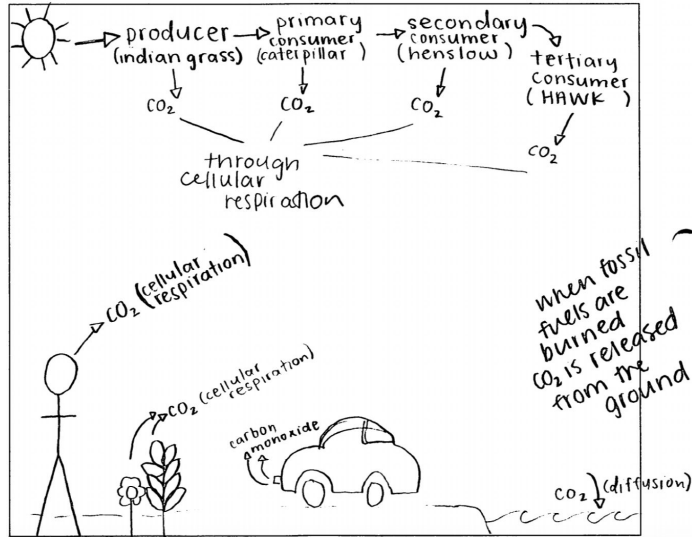 producer
(indian grass)
primary
consumer
(caterpillar)
secondary
consumer
(henslow)
tertiary
consumer
(HAWK)
CO₂
CO₂
CO₂
CO₂
through
cellular
respiration
CO₂ (cellular
respiration)
CO₂ (cellular
respiration)
carbon
monoxide
when fossil
fuels are
burned
CO₂ is released
from the
ground
CO₂ (diffusion)